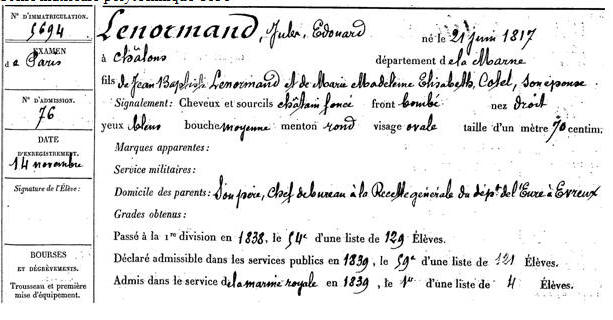 N° D'IMMATRICULATION.
5694
EXAMEN
de Paris
N° D'ADMISSION.
76
DATE
D'ENREGISTREMENT.
14 novembre
Signature de l'Élève :
BOURSES
ET DÉGRÈVEMENTS.
Trousseau et première
mise d'équipement.
Lenormand, Jules, Edouard né le 21 juin 1817
à Châlons département de la Marne
fils de Jean Baptiste Lenormand et de Marie Madeleine Elisabeth, son épouse
Signalement : Cheveux et sourcils châtain foncé front bombé nez droit
yeux bleus bouche moyenne menton rond visage ovale taille d'un mètre 70 centim.
Marques apparentes :
Service militaires :
Domicile des parents : Son père, Chef de bureau à la Recette générale du dépt de l'Eure à Evreux
Grades obtenus :
Passé à la 1re division en 1838, le 54e d'une liste de 129 Élèves.
Déclaré admissible dans les services publics en 1839, le 59e d'une liste de 121 Élèves.
Admis dans le service de la marine royale en 1839, le 1er d'une liste de 4 Élèves.